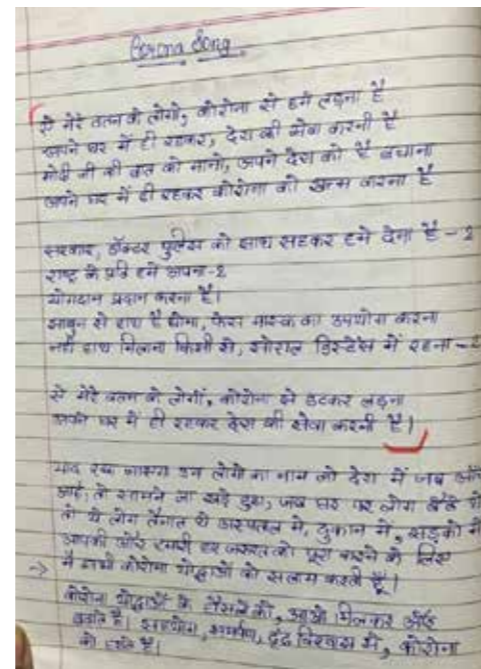 Corona Song
ऐ मेरे वतन के लोगो, कोरोना से हमे लड़ना है
अपने घर में ही रहकर, देश की सेवा करनी है
मोदी जी की बात को मानो, अपने देश को है बचाना
अपने घर में ही रहकर कोरोना को खत्म करना है
सरकार, डॉक्टर पुलिस को साथ हमे देना है - 2
राष्ट्र के प्रति हमें अपना-2
योगदान प्रदान करना है।
साबुन से हाथ है धोना, फेस मास्क का उपयोग करना
नही हाथ मिलाना किसी से, सोशल डिस्टेंस में रहना - 2
ऐ मेरे वतन के लोगों, कोरोना से डटकर लड़ना
अपने घर में ही रहकर देश की सेवा करनी है।
याद रखा जाएगा उन लोगो का नाम जो देश में जब
तो सामने आ खड़े हुए, जब घर पर लोग बैठे थे
तो ये लोग तैनात थे अस्पताल में, दुकान में, सड़को में
आपकी और हमारी हर जरुरत को पूरा करने के लिए
→ मै सभी कोरोना योद्धाओं को सलाम करती हूँ।
कोरोना योद्धाओं के हौसले को, आओ मिलकर और
बढ़ाते है। सहयोग, समर्पण, दृढ़ विश्वास से, कोरोना
को हराते है।